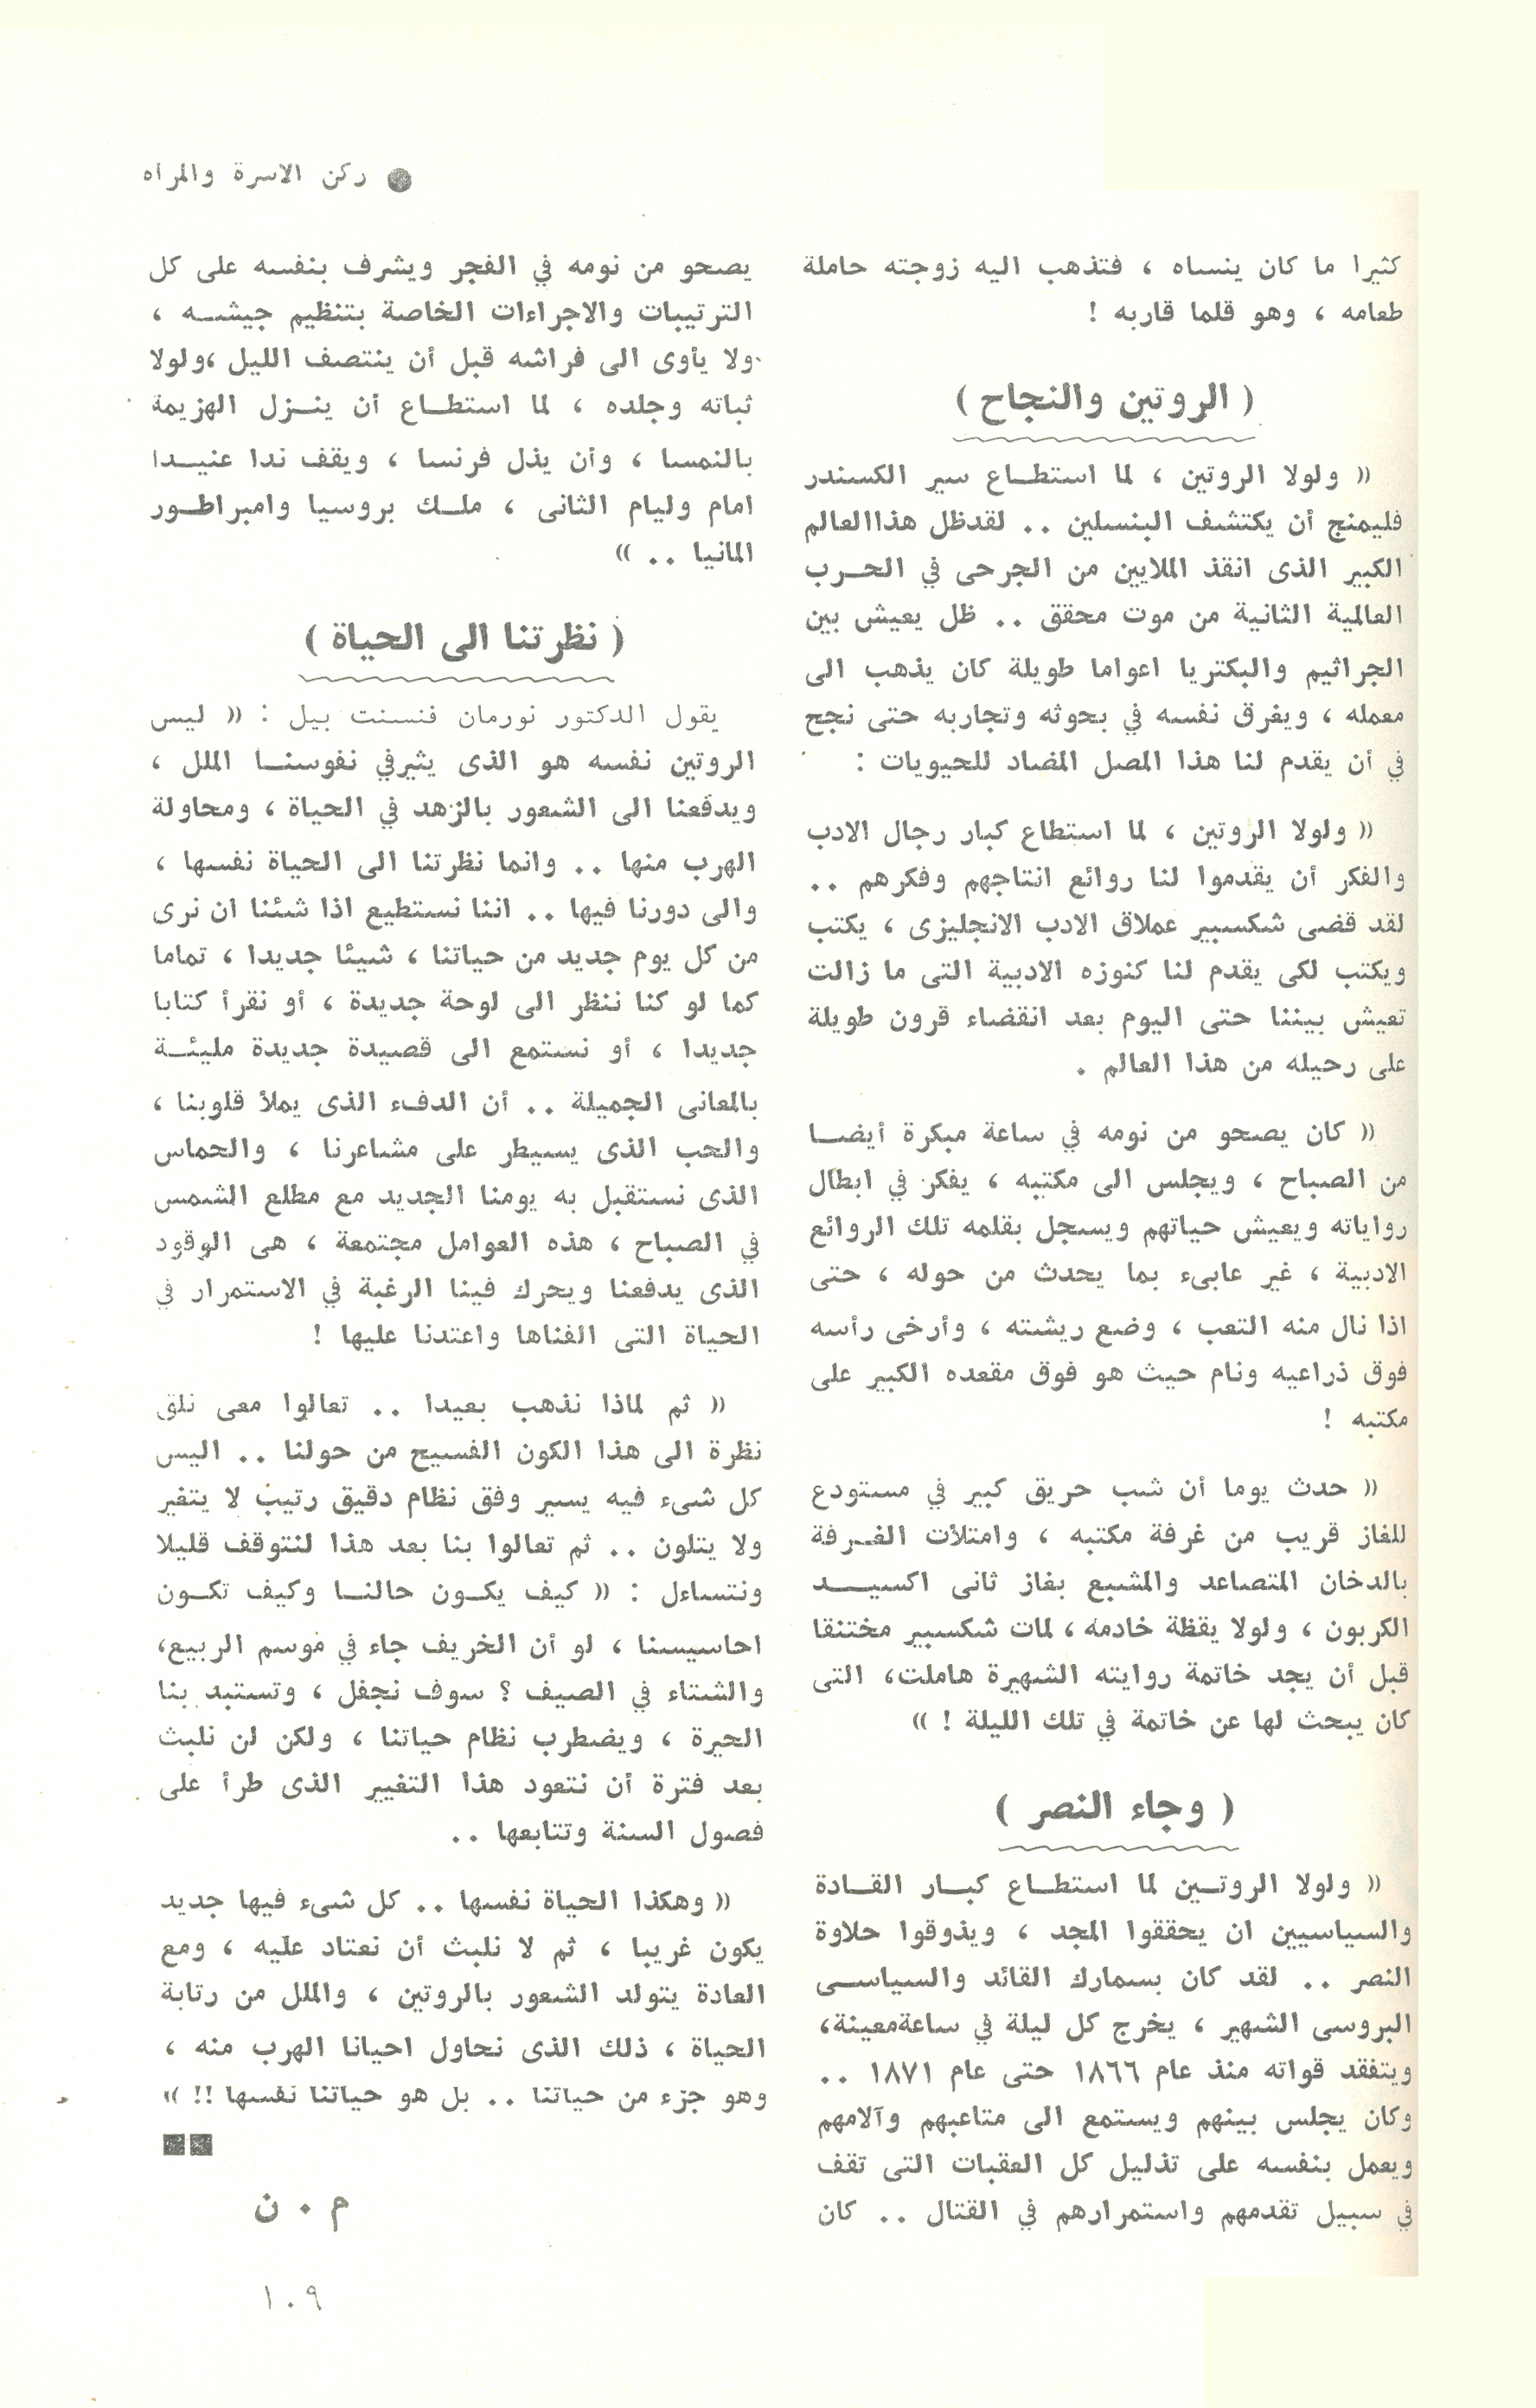 ● ركن الاسرة والمرأه
كثيرا ما كان ينساه ، فتذهب اليه زوجته حاملة
طعامه ، وهو قلما قاربه !
( الروتين والنجاح )
« ولولا الروتين ، لما استطاع سير الكسندر
فليمنج أن يكتشف البنسلين .. لقدظل هذاالعالم
الكبير الذى انقذ الملايين من الجرحى في الحرب
العالمية الثانية من موت محقق .. ظل يعيش بين
الجراثيم والبكتريا اعواما طويلة كان يذهب الى
معمله ، ويغرق نفسه في بحوثه وتجاربه حتى نجح
في أن يقدم لنا هذا المصل المضاد للحيويات :
« ولولا الروتين ، لما استطاع كبار رجال الادب
والفكر أن يقدموا لنا روائع انتاجهم وفكرهم ..
لقد قضى شكسبير عملاق الادب الانجليزى ، يكتب
ويكتب لكى يقدم لنا كنوزه الادبية التى ما زالت
تعيش بيننا حتى اليوم بعد انقضاء قرون طويلة
على رحيله من هذا العالم .
« كان يصحو من نومه في ساعة مبكرة أيضا
من الصباح ، ويجلس الى مكتبه ، يفكر في ابطال
رواياته ويعيش حياتهم ويسجل بقلمه تلك الروائع
الادبية ، غير عابىء بما يحدث من حوله ، حتى
اذا نال منه التعب ، وضع ريشته ، وأرخى رأسه
فوق ذراعيه ونام حيث هو فوق مقعده الكبير على
مكتبه !
« حدث يوما أن شب حريق كبير في مستودع
للغاز قريب من غرفة مكتبه ، وامتلأت الغرفة
بالدخان المتصاعد والمشبع بغاز ثانى اكسيد
الكربون ، ولولا يقظة خادمه ، لمات شكسبير مختنقا
قبل أن يجد خاتمة روايته الشهيرة هاملت، التى
كان يبحث لها عن خاتمة في تلك الليلة ! »
( وجاء النصر )
« ولولا الروتين لما استطاع كبار القادة
والسياسيين ان يحققوا المجد ، ويذوقوا حلاوة
النصر .. لقد كان بسمارك القائد والسياسى
البروسى الشهير ، يخرج كل ليلة في ساعةمعينة،
ويتفقد قواته منذ عام ١٨٦٦ حتى عام ١٨٧١ ..
وكان يجلس بينهم ويستمع الى متاعبهم وآلامهم
ويعمل بنفسه على تذليل كل العقبات التى تقف
في سبيل تقدمهم واستمرارهم في القتال .. كان
يصحو من نومه في الفجر ويشرف بنفسه على كل
الترتيبات والاجراءات الخاصة بتنظيم جيشه ،
ولا يأوى الى فراشه قبل أن ينتصف الليل ،ولولا
ثباته وجلده ، لما استطاع أن ينزل الهزيمة
بالنمسا ، وأن يذل فرنسا ، ويقف ندا عنيدا
امام وليام الثانى ، ملك بروسيا وامبراطور
المانيا .. »
( نظرتنا الى الحياة )
يقول الدكتور نورمان فنسنت بيل : « ليس
الروتين نفسه هو الذى يثيرفي نفوسنا الملل ،
ويدفعنا الى الشعور بالزهد في الحياة ، ومحاولة
الهرب منها .. وانما نظرتنا الى الحياة نفسها ،
والى دورنا فيها .. اننا نستطيع اذا شئنا ان نرى
من كل يوم جديد من حياتنا ، شيئا جديدا ، تماما
كما لو كنا ننظر الى لوحة جديدة ، أو نقرأ كتابا
جديدا ، أو نستمع الى قصيدة جديدة مليئة
بالمعانى الجميلة .. أن الدفء الذى يملأ قلوبنا ،
والحب الذى يسيطر على مشاعرنا ، والحماس
الذى نستقبل به يومنا الجديد مع مطلع الشمس
في الصباح ، هذه العوامل مجتمعة ، هى الوقود
الذى يدفعنا ويحرك فينا الرغبة في الاستمرار في
الحياة التى الفناها واعتدنا عليها !
« ثم لماذا نذهب بعيدا .. تعالوا معى نلق
نظرة الى هذا الكون الفسيح من حولنا .. اليس
كل شىء فيه يسير وفق نظام دقيق رتيب لا يتغير
ولا يتلون .. ثم تعالوا بنا بعد هذا لنتوقف قليلا
ونتساءل : « كيف يكون حالنا وكيف تكون
احاسيسنا ، لو أن الخريف جاء في موسم الربيع،
والشتاء في الصيف ؟ سوف نجفل ، وتستبد بنا
الحيرة ، ويضطرب نظام حياتنا ، ولكن لن نلبث
بعد فترة أن نتعود هذا التغيير الذى طرأ على
فصول السنة وتتابعها ..
« وهكذا الحياة نفسها .. كل شىء فيها جديد
يكون غريبا ، ثم لا نلبث أن نعتاد عليه ، ومع
العادة يتولد الشعور بالروتين ، والملل من رتابة
الحياة ، ذلك الذى نحاول احيانا الهرب منه ،
وهو جزء من حياتنا .. بل هو حياتنا نفسها !! »
م . ن
١٠٩